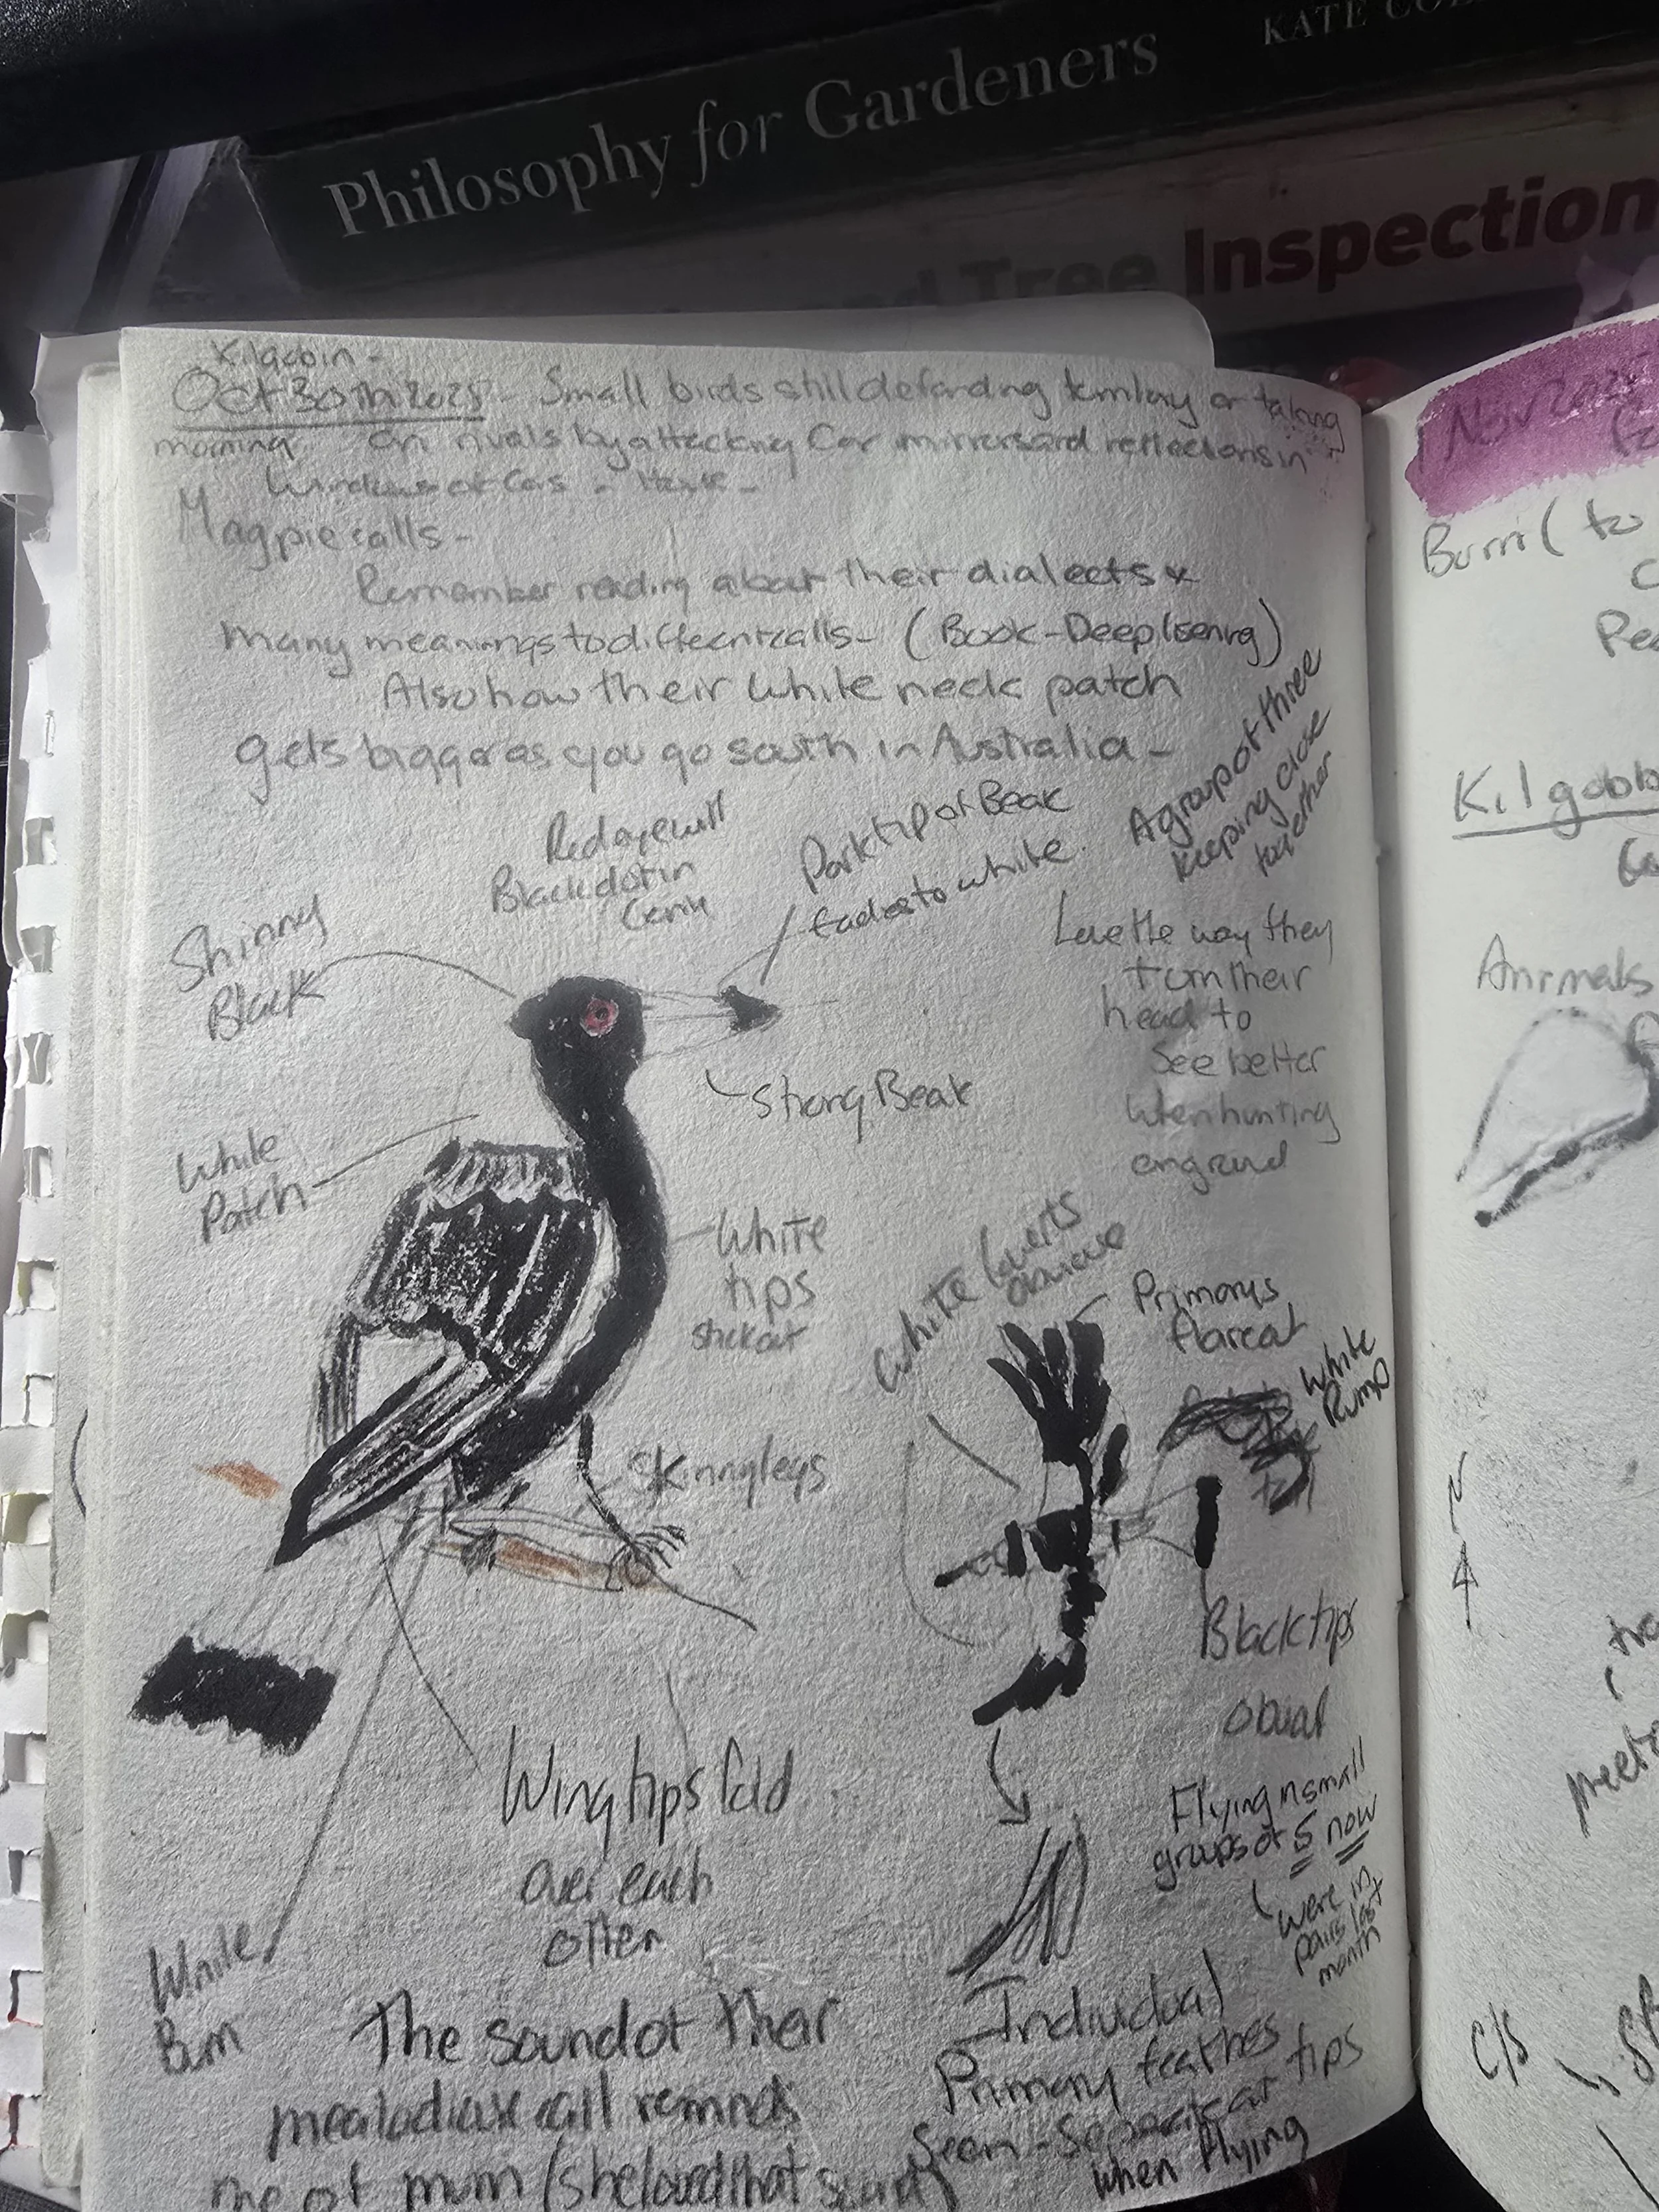 Philosophy for Gardeners
KATE CO
Tree Inspection
Kilgobin -
Oct 30th 2025 - Small birds still defending territory or taking
morning on rivals by attacking Car mirrors and reflections in
Windows of Cars -
Magpie calls -
Remember reading about their dialects &
many meanings to different calls - (Book - Deep lisening)
Also how their white neck patch
gets bigger as you go south in Australia -
A group of three
keeping close
together
Red eye with
Black dot in
Dark tip of Beak
fades to white.
Shinny
Black
Love the way they
turn their
head to
See better
when hunting
on ground
Strong Beak
White
Patch
White
tips
stick out
White
Primarys
flare out
White
Rump
Skinny legs
Black tips
Wing tips fold
over each
other
Flying in small
groups of 5 now
were in
pairs last
month
White
Bum
The sound of their
mealodious call reminds
me of mum (she loved that sound)
Individual
Primary feathes
Seen - Separate at tips
when flying
Nov 2025
Burri ( to
C
Kilgobb
Animals
N
4
meet
C/S